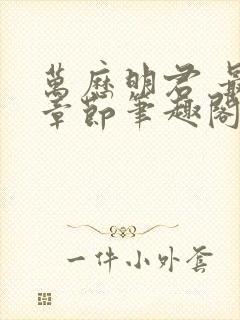 萬歷明君 最
章節筆趣閣
一件小外套